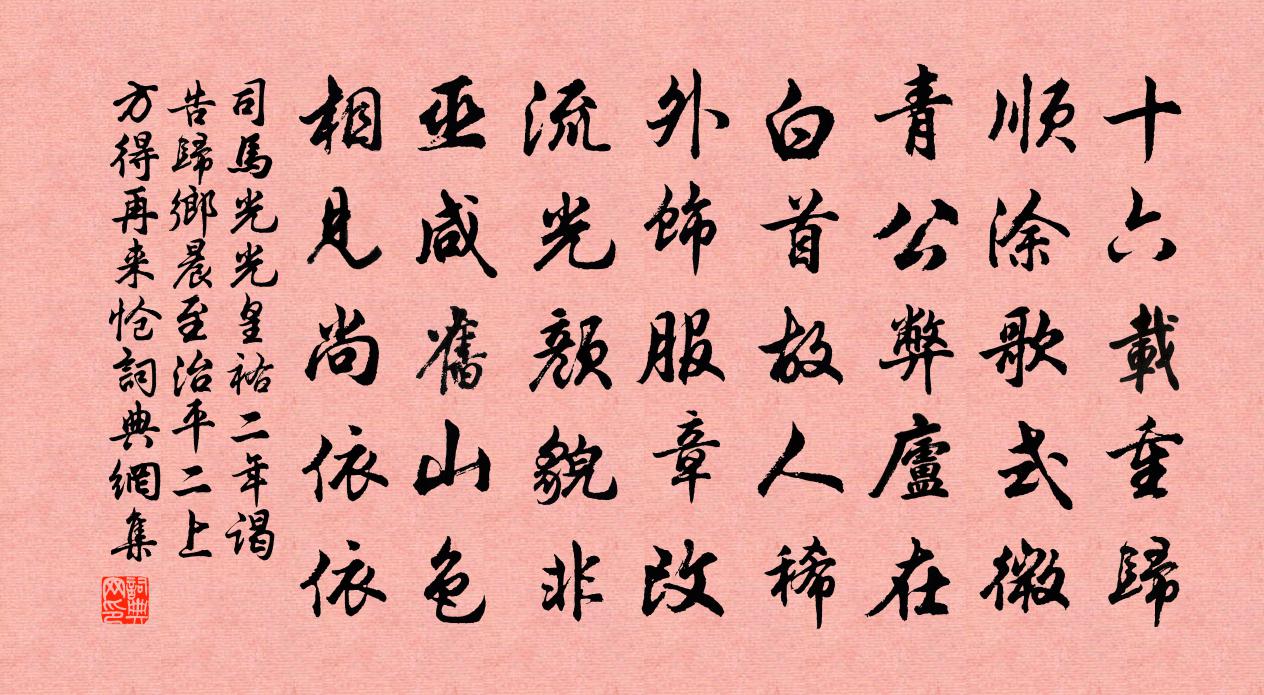 十六載重歸
順涂歌式微
青公弊廬在
白首故人稀
外飾服章改
流光顏貌非
巫咸舊山色
相見尚依依
司馬光光皇祐二年謁
告歸鄉晨至治平二上
方得再来怆詞典網集